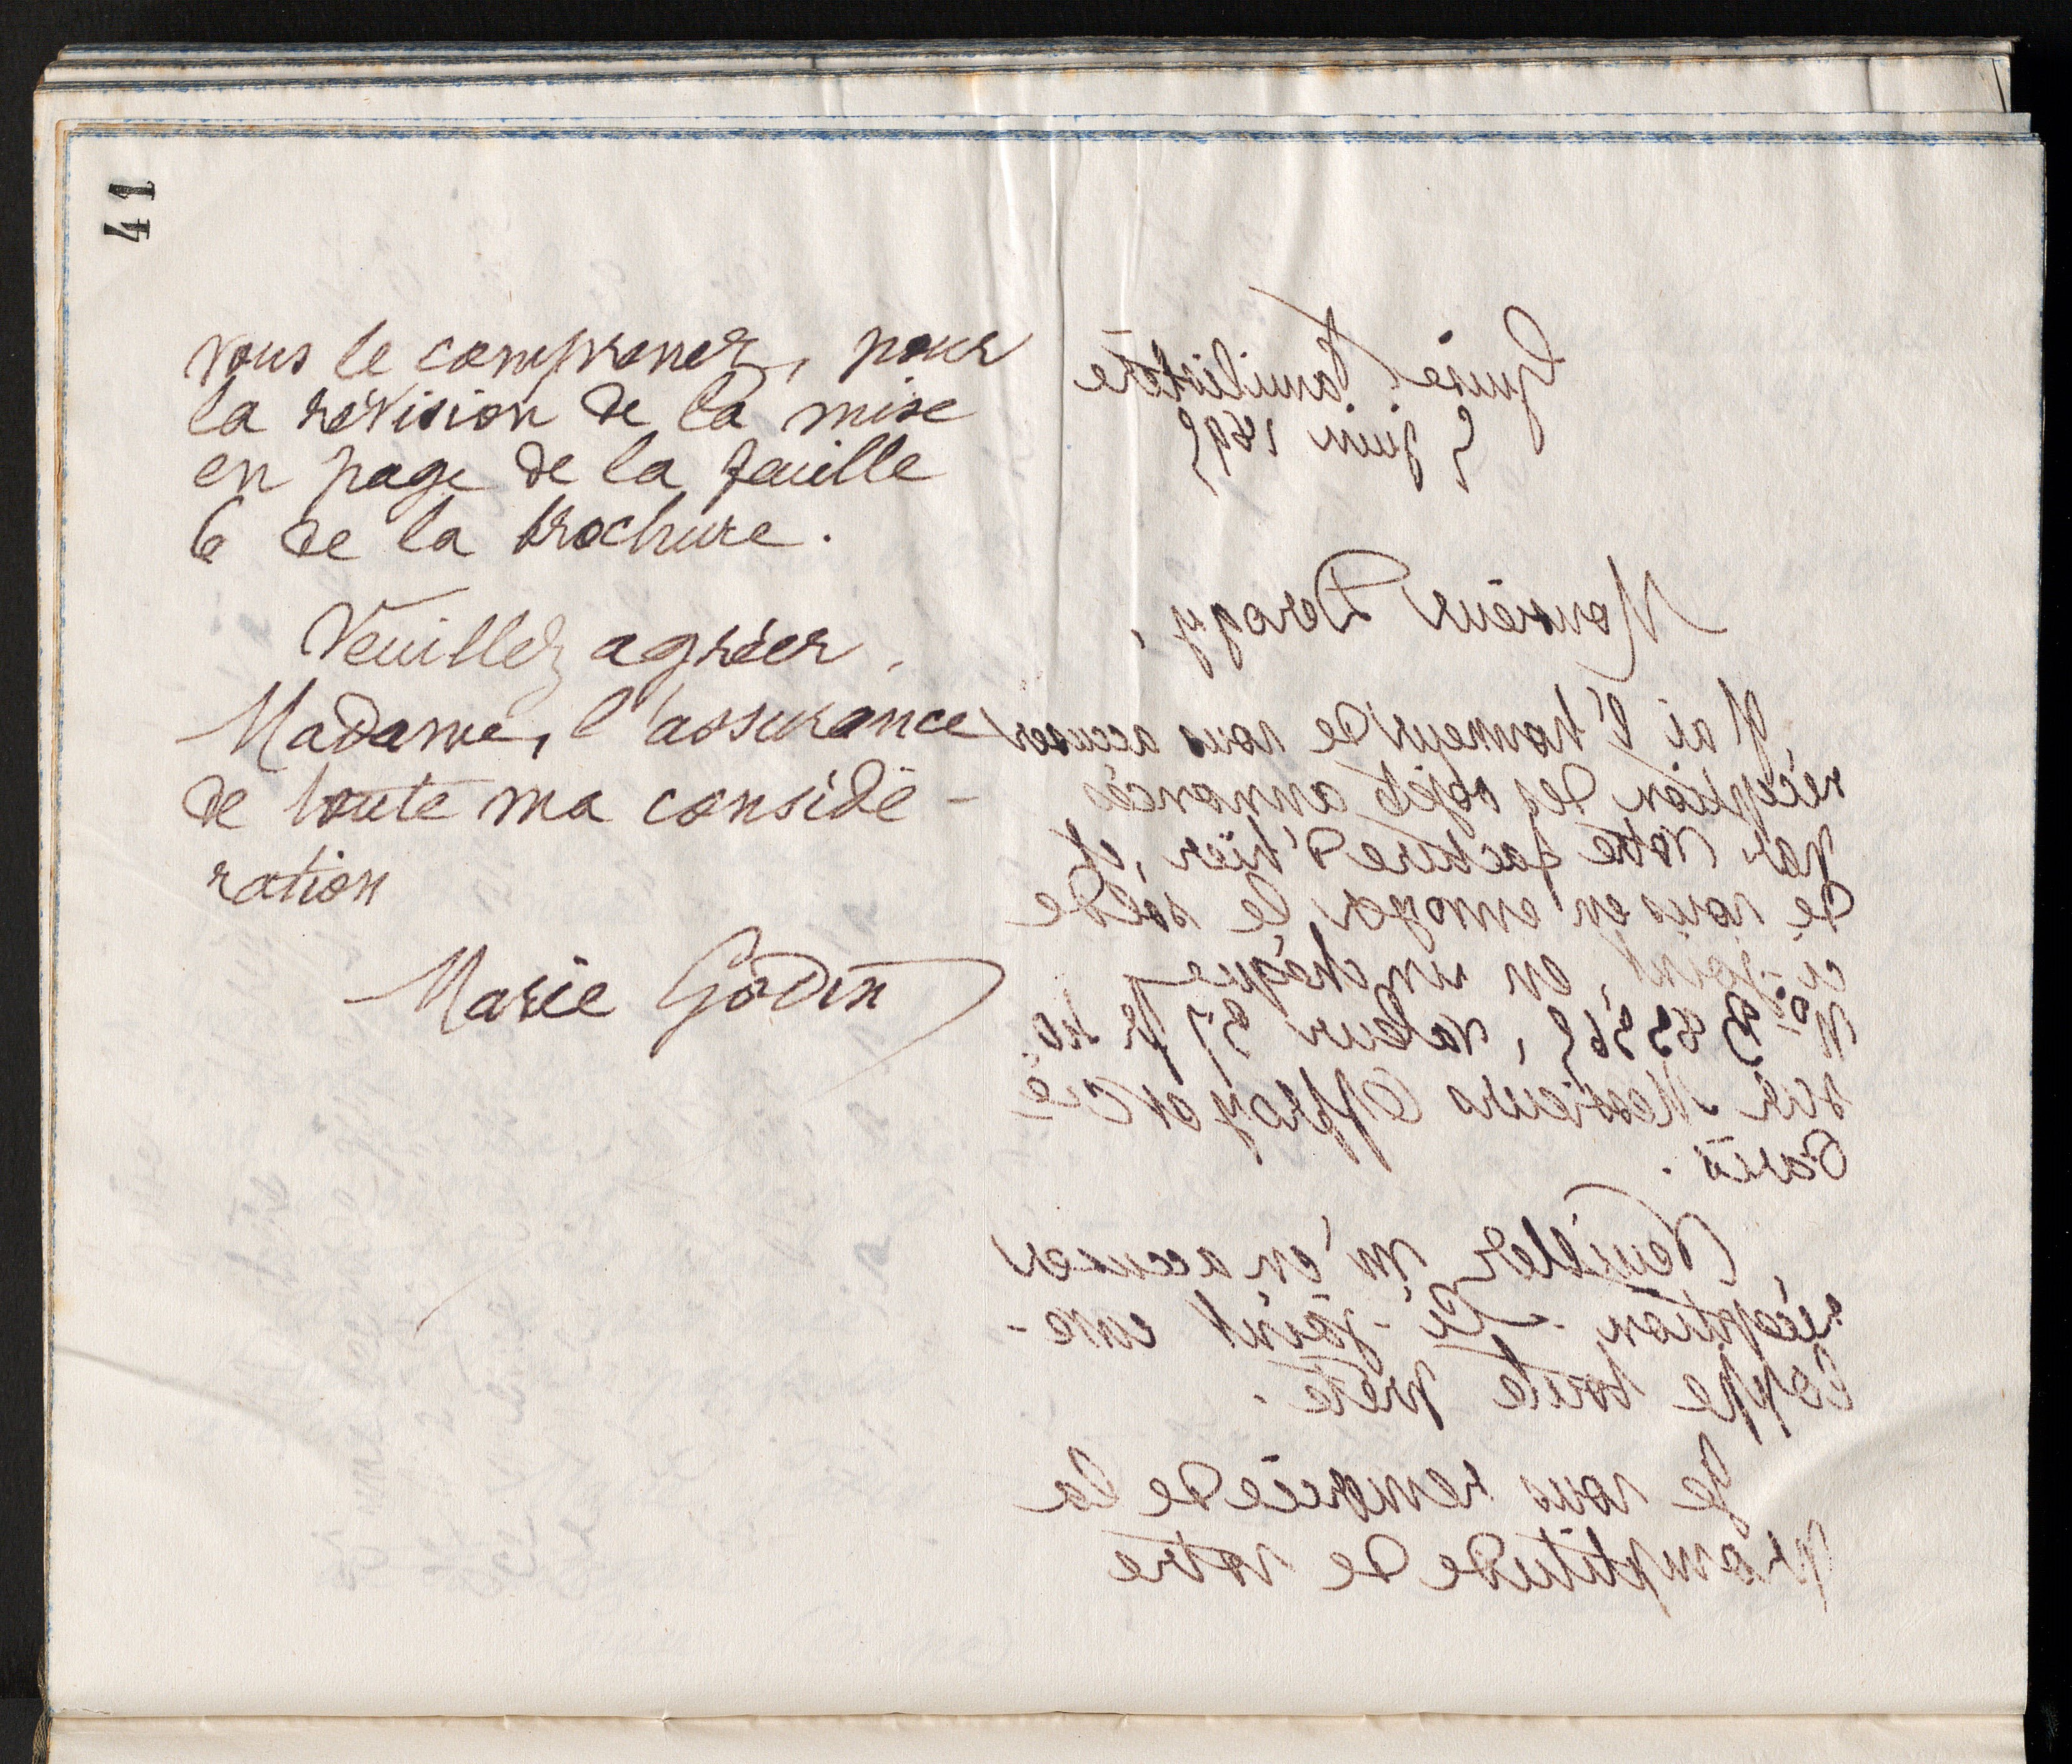 41
vous le comprenez, pour
la révision de la mise
en page de la feuille
6 de la brochure.
Veuillez agréer,
Madame, l'assurance
de toute ma considé-
ration
Marie Godin
Guise Familistère
5 juin 1895
Monsieur Derogy,
J'ai l'honneur de vous accuser
réception des objets annoncés
par votre facture d'hier, et
de vous en envoyer le solde
ci-joint, en un chèque
valeur 57 fr 40
sur Messieurs Offroy et Cie
Paris.
Veuillez m'en accuser
réception. Ci-joint enve-
loppe toute prête.
Je vous remercie de la
promptitude de votre